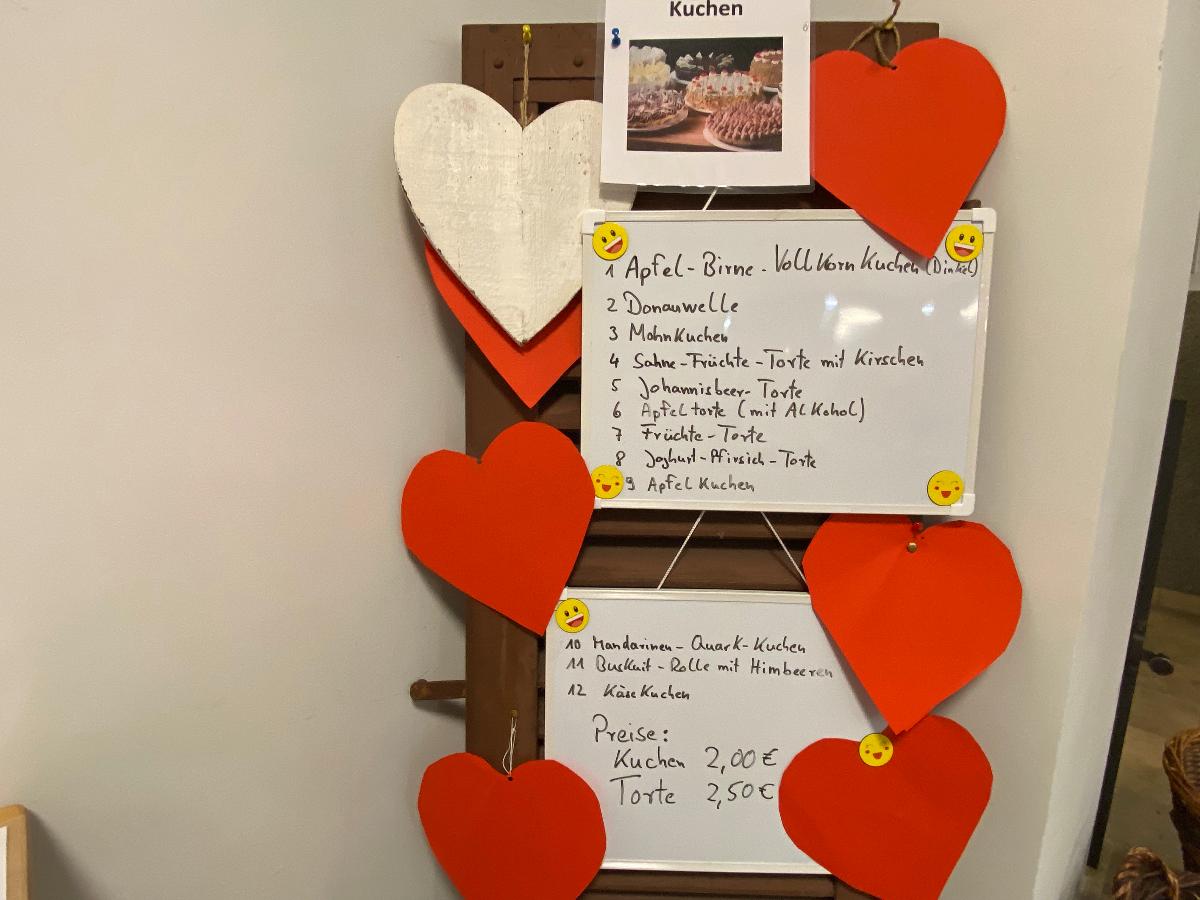 Kuchen
1 Apfel-Birne-Vollkorn Kuchen (Dinkel)
2 Donauwelle
3 Mohnkuchen
4 Sahne-Früchte-Torte mit Kirschen
5 Johannisbeer-Torte
6 Apfeltorte (mit Alkohol)
7 Früchte-Torte
8 Joghurt-Pfirsich-Torte
9 Apfel Kuchen
10 Mandarinen-Quark-Kuchen
11 Buskuit-Rolle mit Himbeeren
12 Käsekuchen
Preise:
Kuchen 2,00 €
Torte 2,50 €